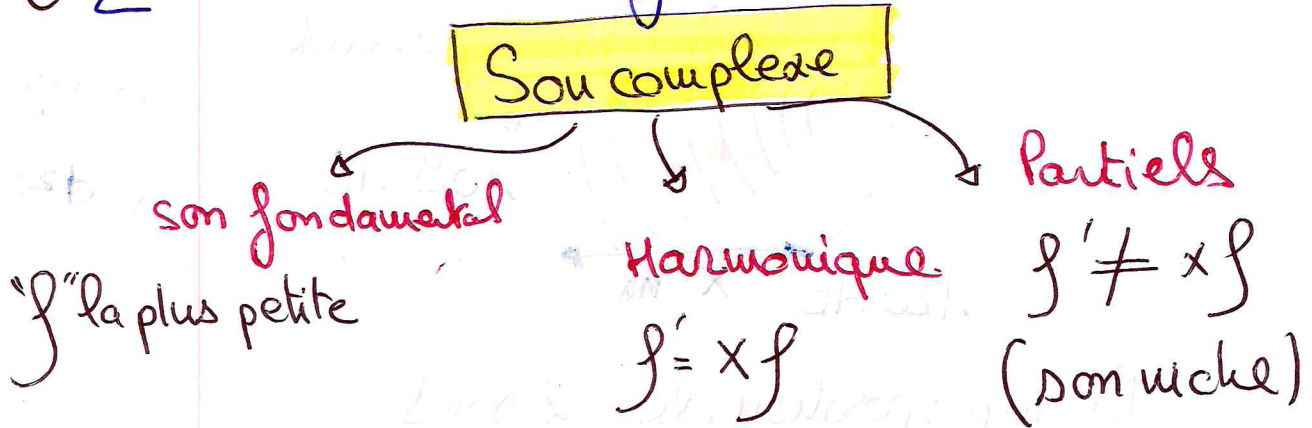 Son complexe
son fondamental
"f" la plus petite
Harmonique
f' = x f
Partiels
f' ≠ x f
(son riche)